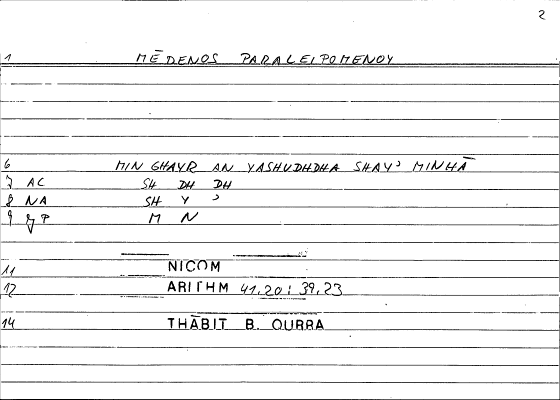 2
1 MĒDENOS PARALEIPOMENOY
6 MIN GHAYR AN YASHUDHDHA SHAY' MINHĀ
7 AC SH DH DH
8 NA SH Y '
9 M N
11 NICOM
12 ARITHM 41,20 : 39,23
14 THĀBIT B. QURRA